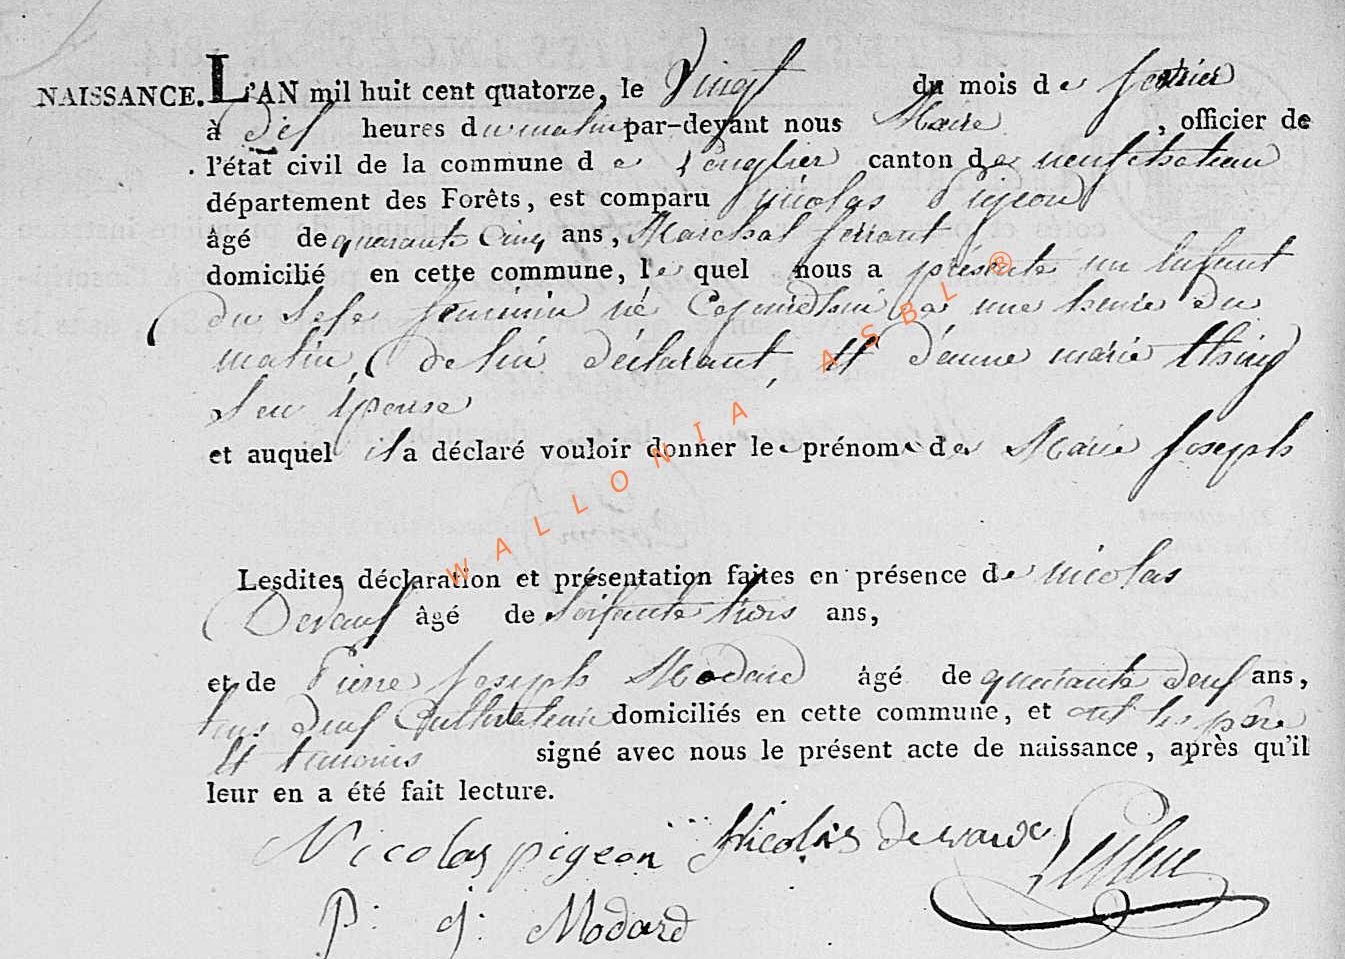 NAISSANCE. L'AN mil huit cent quatorze, le Vingt du mois de fevrier
à dix heures du matin par-devant nous Maire, officier de
l'état civil de la commune de Longlier canton de neufchateau
département des Forêts, est comparu nicolas Pigeon
âgé de quarante Cinq ans, Marchal ferrant
domicilié en cette commune, le quel nous a présenté un Enfant
du Sexe feminin né Cejourdhui a une heure du
matin, de lui déclarant, Et d'anne marie
Son Epouse
et auquel il a déclaré vouloir donner le prénom de Marie Joseph
Lesdites déclaration et présentation faites en présence de nicolas
Devaux âgé de Soixante trois ans,
et de Pierre Joseph Modard âgé de quarante deux ans,
tous deux Cultivateurs domiciliés en cette commune, et ont les père
Et temoins signé avec nous le présent acte de naissance, après qu'il
leur en a été fait lecture.
Nicolas pigeon Nicolas Devaux
P: j: Modard
WALLONIA ASBL ®